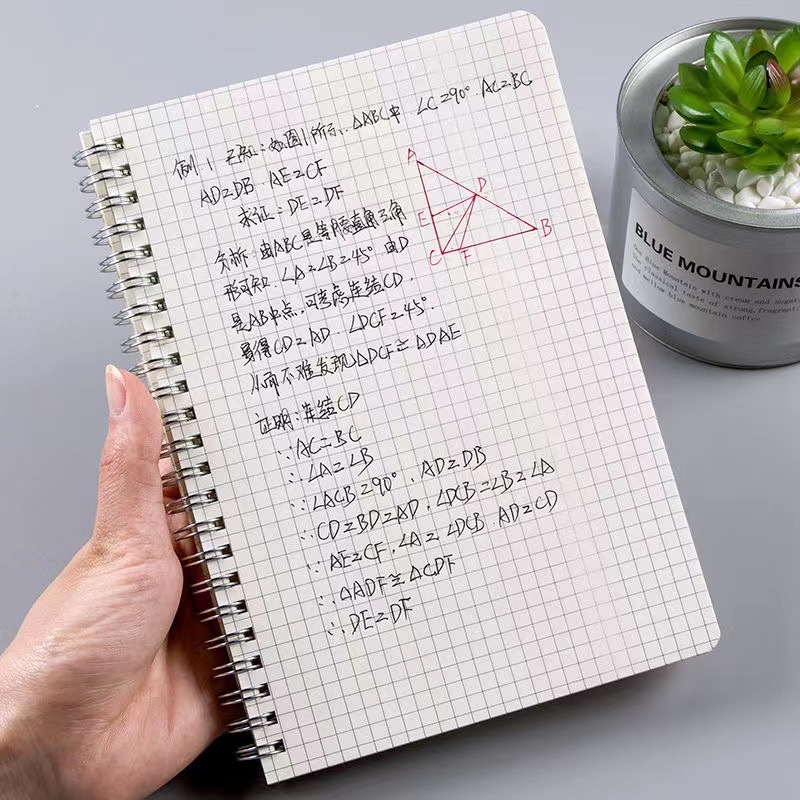 例1 已知:如图1所示.△ABC中.∠C=90°.AC=BC
AD=DB.AE=CF
求证:DE=DF
分析:由ABC是等腰直角三角
形可知.∠A=∠B=45°由D
是AB中点,可考虑连结CD.
易得CD=AD.∠DCF=45°.
从而不难发现△DCF≌△DAE
证明:连结CD
∵AC=BC
∴∠A=∠B
∵∠ACB=90°.AD=DB
∴CD=BD=AD.∠DCB=∠B=∠A
∵AE=CF.∠A=∠DCB.AD=CD
∴△ADF≌△CDF
∴DE=DF
A
D
E
B
C
F
BLUE MOUNTAINS
One Blue Mountain with cream and sugar
The classical taste of strong, fragrant
and mellow blue mountain coffee